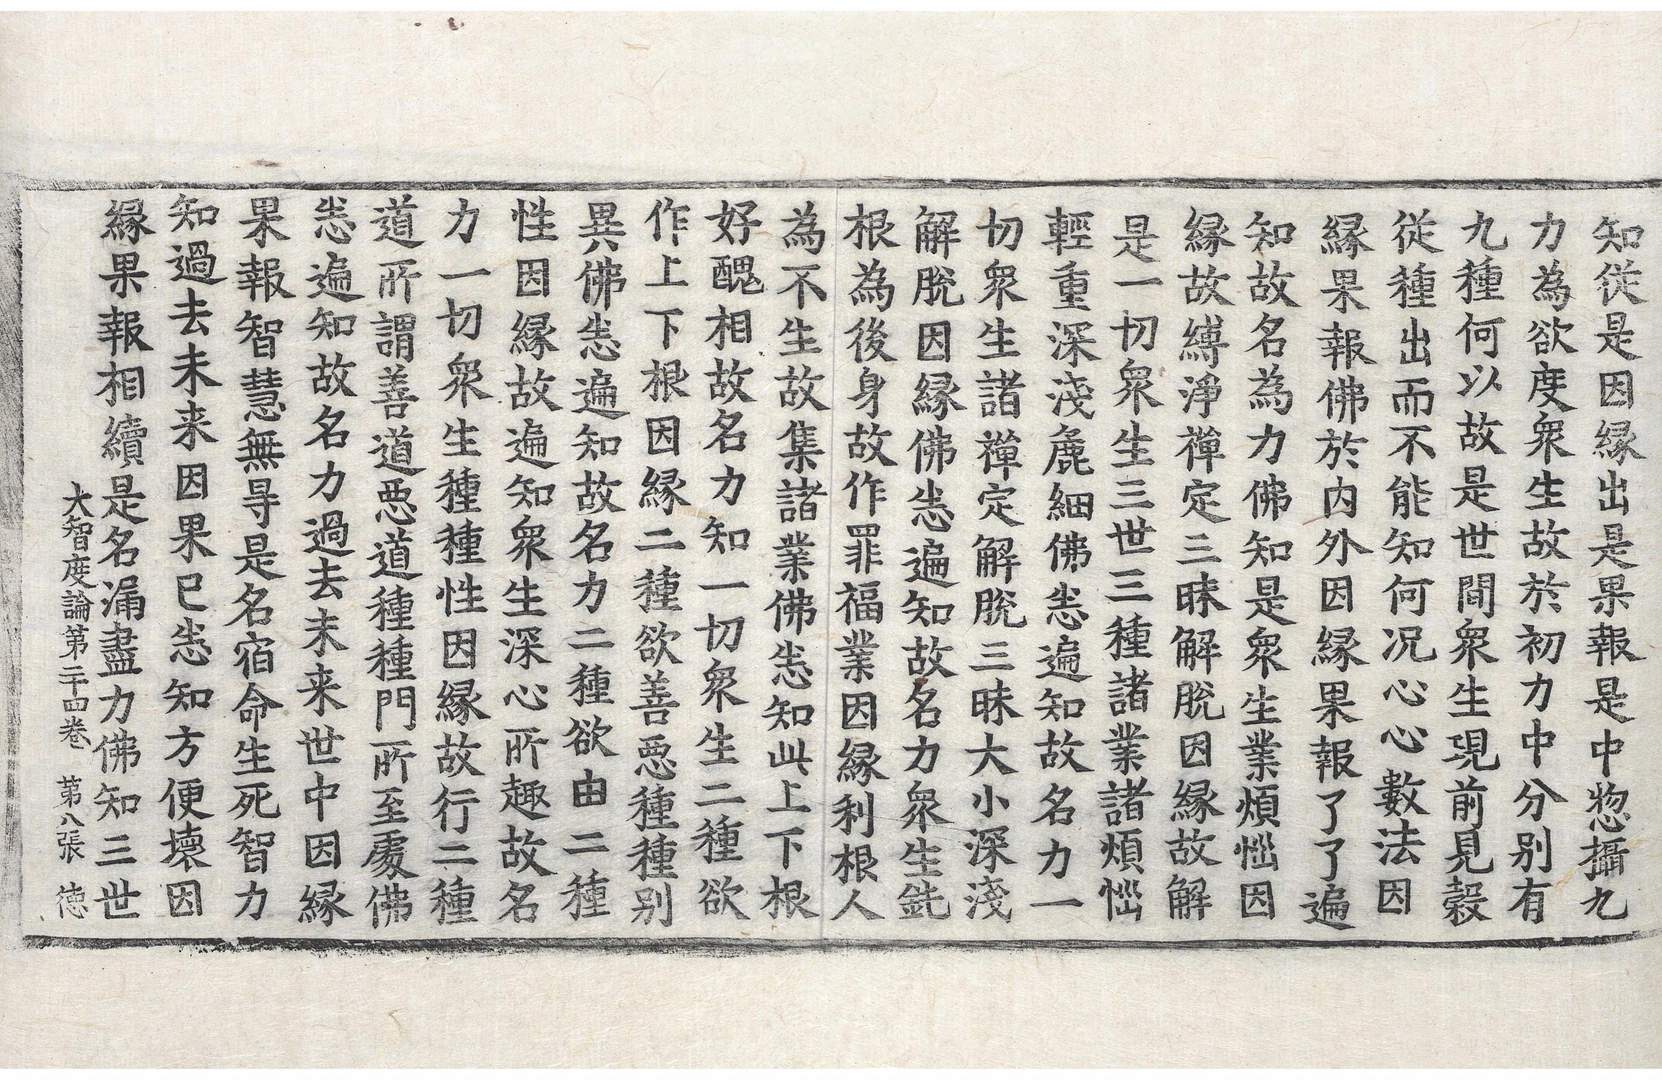 知從是因縁出是果報是中惣攝九
力為欲度衆生故於初力中分別有
九種何以故是世間衆生現前見穀
從種出而不能知何况心心數法因
縁果報佛於內外因縁果報了了遍
知故名為力佛知是衆生業煩惱因
縁故縛淨禪定三昧解脫因縁故解
是一切衆生三世三種諸業諸煩惱
輕重深淺麁細佛悉遍知故名力一
切衆生諸禪定解脫三昧大小深淺
解脫因縁佛悉遍知故名力衆生鈍
根為後身故作罪福業因縁利根人
為不生故集諸業佛悉知此上下根
好醜相故名力知一切衆生二種欲
作上下根因縁二種欲善惡種種別
異佛悉遍知故名力二種欲由二種
性因縁故遍知衆生深心所趣故名
力一切衆生種種性因縁故行二種
道所謂善道惡道種種門所至處佛
悉遍知故名力過去未来世中因縁
果報智慧無㝵是名宿命生死智力
知過去未来因果已悉知方便壞因
縁果報相續是名漏盡力佛知三世
大智度論第二十四卷　第八張　徳